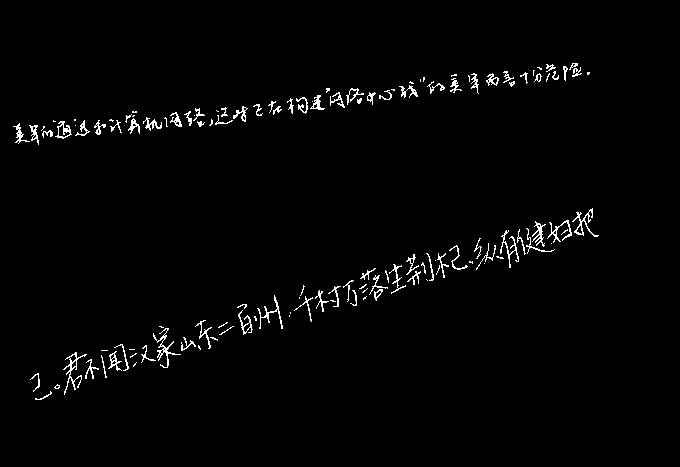 美军的通迅和计算机网络，这对正在构建“网络中心战”的美军而言十分危险．
已。君不闻汉家山东二百州．千村万落生荆杞．纵有健妇把